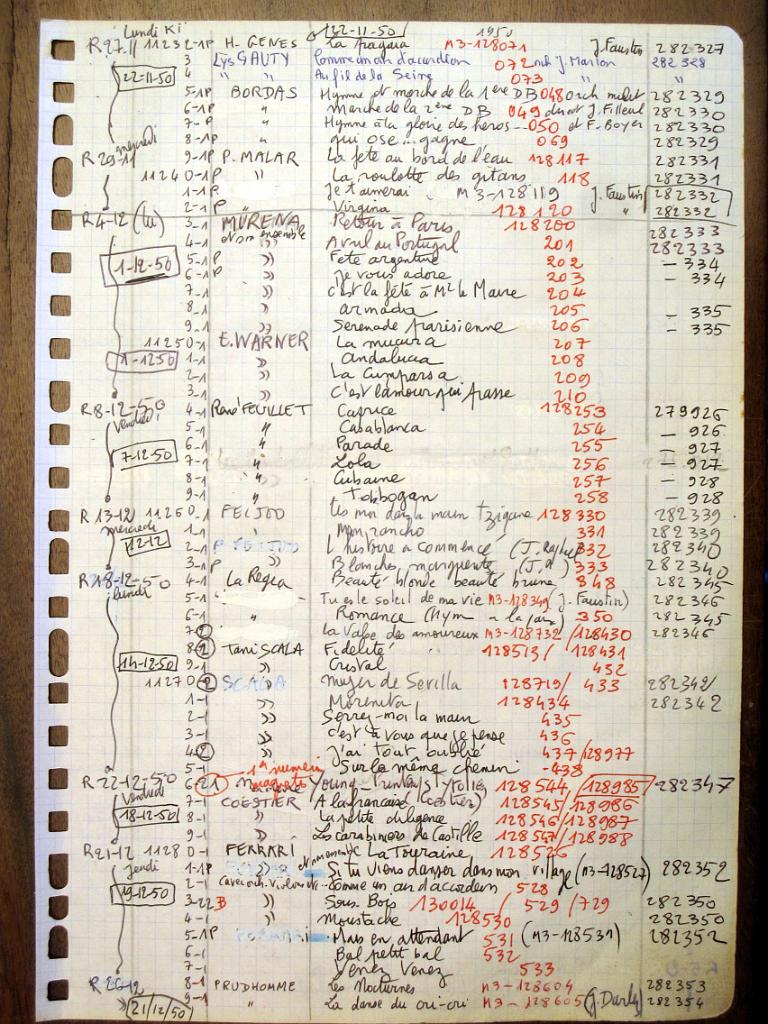 Lundi Ki 22-11-50 1950
R 27.11 11232-1P H. GENES La M3-128071 J. Faustin 282327
3 Lys GAUTY Comme un air d'accordéon 072 J. Marion 282328
22-11-50 4 " " Au fil de la Seine 073 " "
5-1P BORDAS Hymne et marche de la 1ère DB 048 orch 282329
6-1P " Marche de la 2ème DB 049 J. Filleul 282330
7-P " Hymne à la gloire des héros -- 050 et F. Boyer 282330
8-1P " qui ose... gagne 069 282329
mercredi
R 29-11 9-1P P. MALAR La fête au bord de l'eau 128117 282331
1124 0-1P " La roulotte des gitans 118 282331
1-1P Je t'aimerai M3-128119 J. Faustin 282332
2-1P " Virginia 128120 " 282332
R 4-12 (lu) 3-1 MURENA Retour à Paris 128200 282333
et son ensemble
4-1 " Avril au Portugal 201 282333
1-12-50 5-1P " Fête argentine 202 - 334
6-1P " je vous adore 203 - 334
7-1 " c'est la fête à Mr le Maire 204
8-1 " armadia 205 - 335
9-1 " Serenade parisienne 206 - 335
11250-1 E. WARNER La mucura 207
1-1250 1-1 " andalucia 208
2-1 " La Cumparsa 209
3-1 " C'est l'amour qui passe 210
R 8-12-50 4-1 René FEUILLET Caprice 128253 279926
Vendredi 5-1 " Casablanca 254 - 926
6-1 " Parade 255 - 927
7-12-50 7-1 " Lola 256 - 927
8-1 " Cubaine 257 - 928
9-1 " Tobbogan 258 - 928
R 13-12 11260-1 FEIJOO Lis moi dans la main tzigane 128330 282339
mercredi 1-1 Mon rancho 331 282339
12-12 2-1 P FEIJOO L'histoire a commencé (J. 332 282340
3-1P Blanches marguerite 333 282340
R 18-12-50 4-1 La Regia Beauté blonde beauté brune 348 282345
lundi 5-1 - Tu es le soleil de ma vie M3-128349 (J. Faustin) 282346
6-1 " Romance 350 282345
7-2 La Valse des amoureux M3-128732/128430 282346
8-2 Tani SCALA Fidelité 128513/ 128431
14-12-50 9-1 " Cristal 432
11270-2 SCALA mujer de Sevilla 128719/ 433 282342/
1-1 " Morenita 128434 282342
2-1 " Serrez-moi la main 435
3-1 " c'est à vous que je pense 436
4-2 " J'ai tout oublié 437/128977
5-1 Sur le même chemin -438
1er numéro
R 22-12-50 6-21 128544/128985/ 282347
Vendredi 7-1 COESTIER A la francaise (Coestier) 128545/128986
18-12-50 8-1 " La petite diligence 128546/128987
9-1 " Les carabiniers de Castille 128547/128988
R 21-12 1128 0-1 FERRARI La Touraine 128526
et son ensemble
jeudi 1-1P " Si tu viens danser dans mon village (M3-128527) 282352
19-12-50 2-1 (avec orch. Comme un air d'accordéon 528
3-22B " Sous Bois 130014 / 529 / 729 282350
4-1 " Moustache 128530 282350
5-1P FERRARI - Mais en attendant 531 (M3-128531) 282352
6-1 Bal petit bal 532
7-1 Venez Venez 533
R 26-12 8-1 PRUDHOMME Les Nocturnes M3-128604 282353
21/12/50 9-1 " La danse du cri-cri M3-128605 (J. Darly) 282354